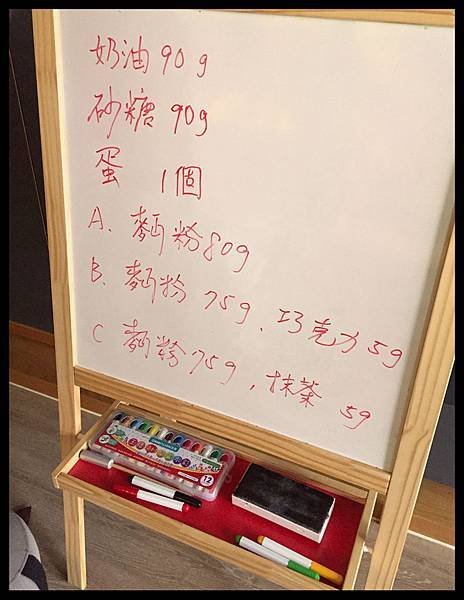 奶油 90g
砂糖 90g
蛋 1個
A. 麵粉 80g
B. 麵粉 75g、巧克力 5g
C 麵粉 75g，抹茶 5g
12